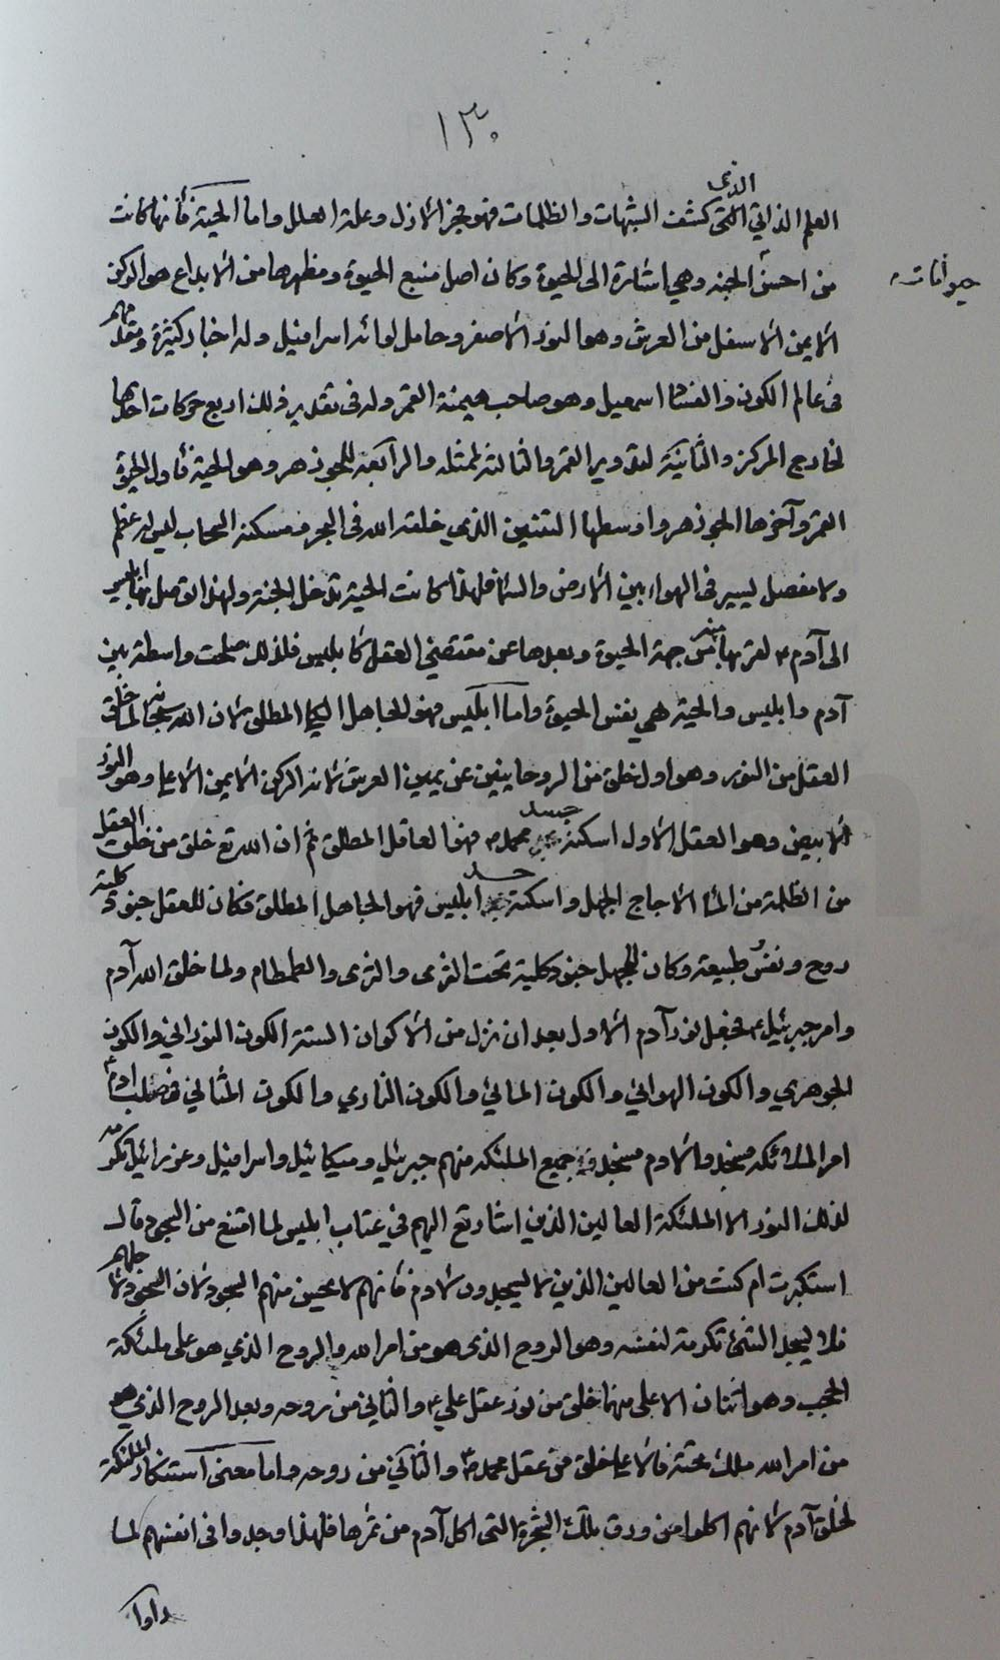 ١٣٠
العلم الذاتي الذي كشف الشبهات والظلمات فهو فجر الازل وعلة العلل واما الحية فأنها كانت
من احسن حيوانات الجنه وهي اشارة الى الحيوة وكان اصل منبع الحيوة ومظهرها من الابداع هو الركن
الايمن الاسفل من العرش وهو النور الاصفر وحامل لوائه اسرافيل وله اخبار كثيرة ومنهم
في عالم الكون والفساد اسمعيل وهو صاحب هيمنة القمر وله في تقدير ذلك اربع حركات احديها
لخارج المركز والثانية لتدوير القمر والثالثة لممثله والرابعة للجوذهر وهو الحية فأول الحيوة
القمر وآخرها الجوذهر واوسطها التنين الذي خلقه الله في البحر مسكنه السحاب ليس له عظم
ولا مفصل ليسير في الهواء بين الارض والسماء فلهذا كانت الحية تدخل الجنة ولهذا توصل بها ابليس
الى آدم ع لقربها منه من جهة الحيوة وبعدها عن مقتضى العقل كابليس فلذلك صلحت واسطة بين
آدم وابليس والحية هي نفس الحيوة واما ابليس فهو الجاهل المطلق لان الله سبحانه لما خلق
العقل من النور وهو اول خلق من الروحانيين عن يمين العرش لانه الركن الايمن الاعلى وهو النور
الابيض وهو العقل الاول اسكنه جسد محمد ص فهو العاقل المطلق ثم ان الله تع خلق من خلف العقل
من الظلمة من الماء الاجاج الجهل واسكنه جسد ابليس فهو الجاهل المطلق فكان للعقل جنود كلية
روح ونفس طبيعة وكان للجهل جنود كلية تحت الثرى والثرى والطمطام ولما خلق الله آدم
وامر جبرئيل ع فجعل نور آدم الاول بعد ان نزل من الاكوان الستة الكون النوراني والكون
الجوهري والكون الهوائي والكون المائي والكون الناري والكون المثالي في صلب آدم ع
امر الملائكة سجدوا لادم فسجد جميع الملئكة منهم جبرئيل وميكائيل واسرافيل وعزرائيل تكرمة
لذلك النور الا الملئكة العالين الذين اشار تع اليهم في عتاب ابليس لما امتنع من السجود قال
استكبرت ام كنت من العالين الذين لا يسجدون لادم فأنهم لا يحسن منهم السجود لان السجود لاجلهم
فلا يسجد الشئ تكرمة لنفسه وهو الروح الذي هو من امر الله والروح الذي هو على ملئكة
الحجب وهو اثنان الاعلى منهما خلق من نور عقل علي ع والثاني من روحه وبعد الروح الذي هو
من امر الله ملك تحته فالاعلى خلق من عقل محمد ص والثاني من روحه واما معنى استنكار الملئكة
لخلق آدم لانهم اكلوا من ورق تلك الشجرة التي اكل آدم من ثمرها فلهذا وجدوا في انفسهم لما
راوا